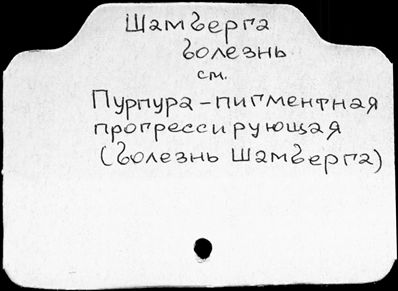 Шамберга
болезнь
см.
Пурпура - пигментная
прогрессирующая
(болезнь Шамберга)